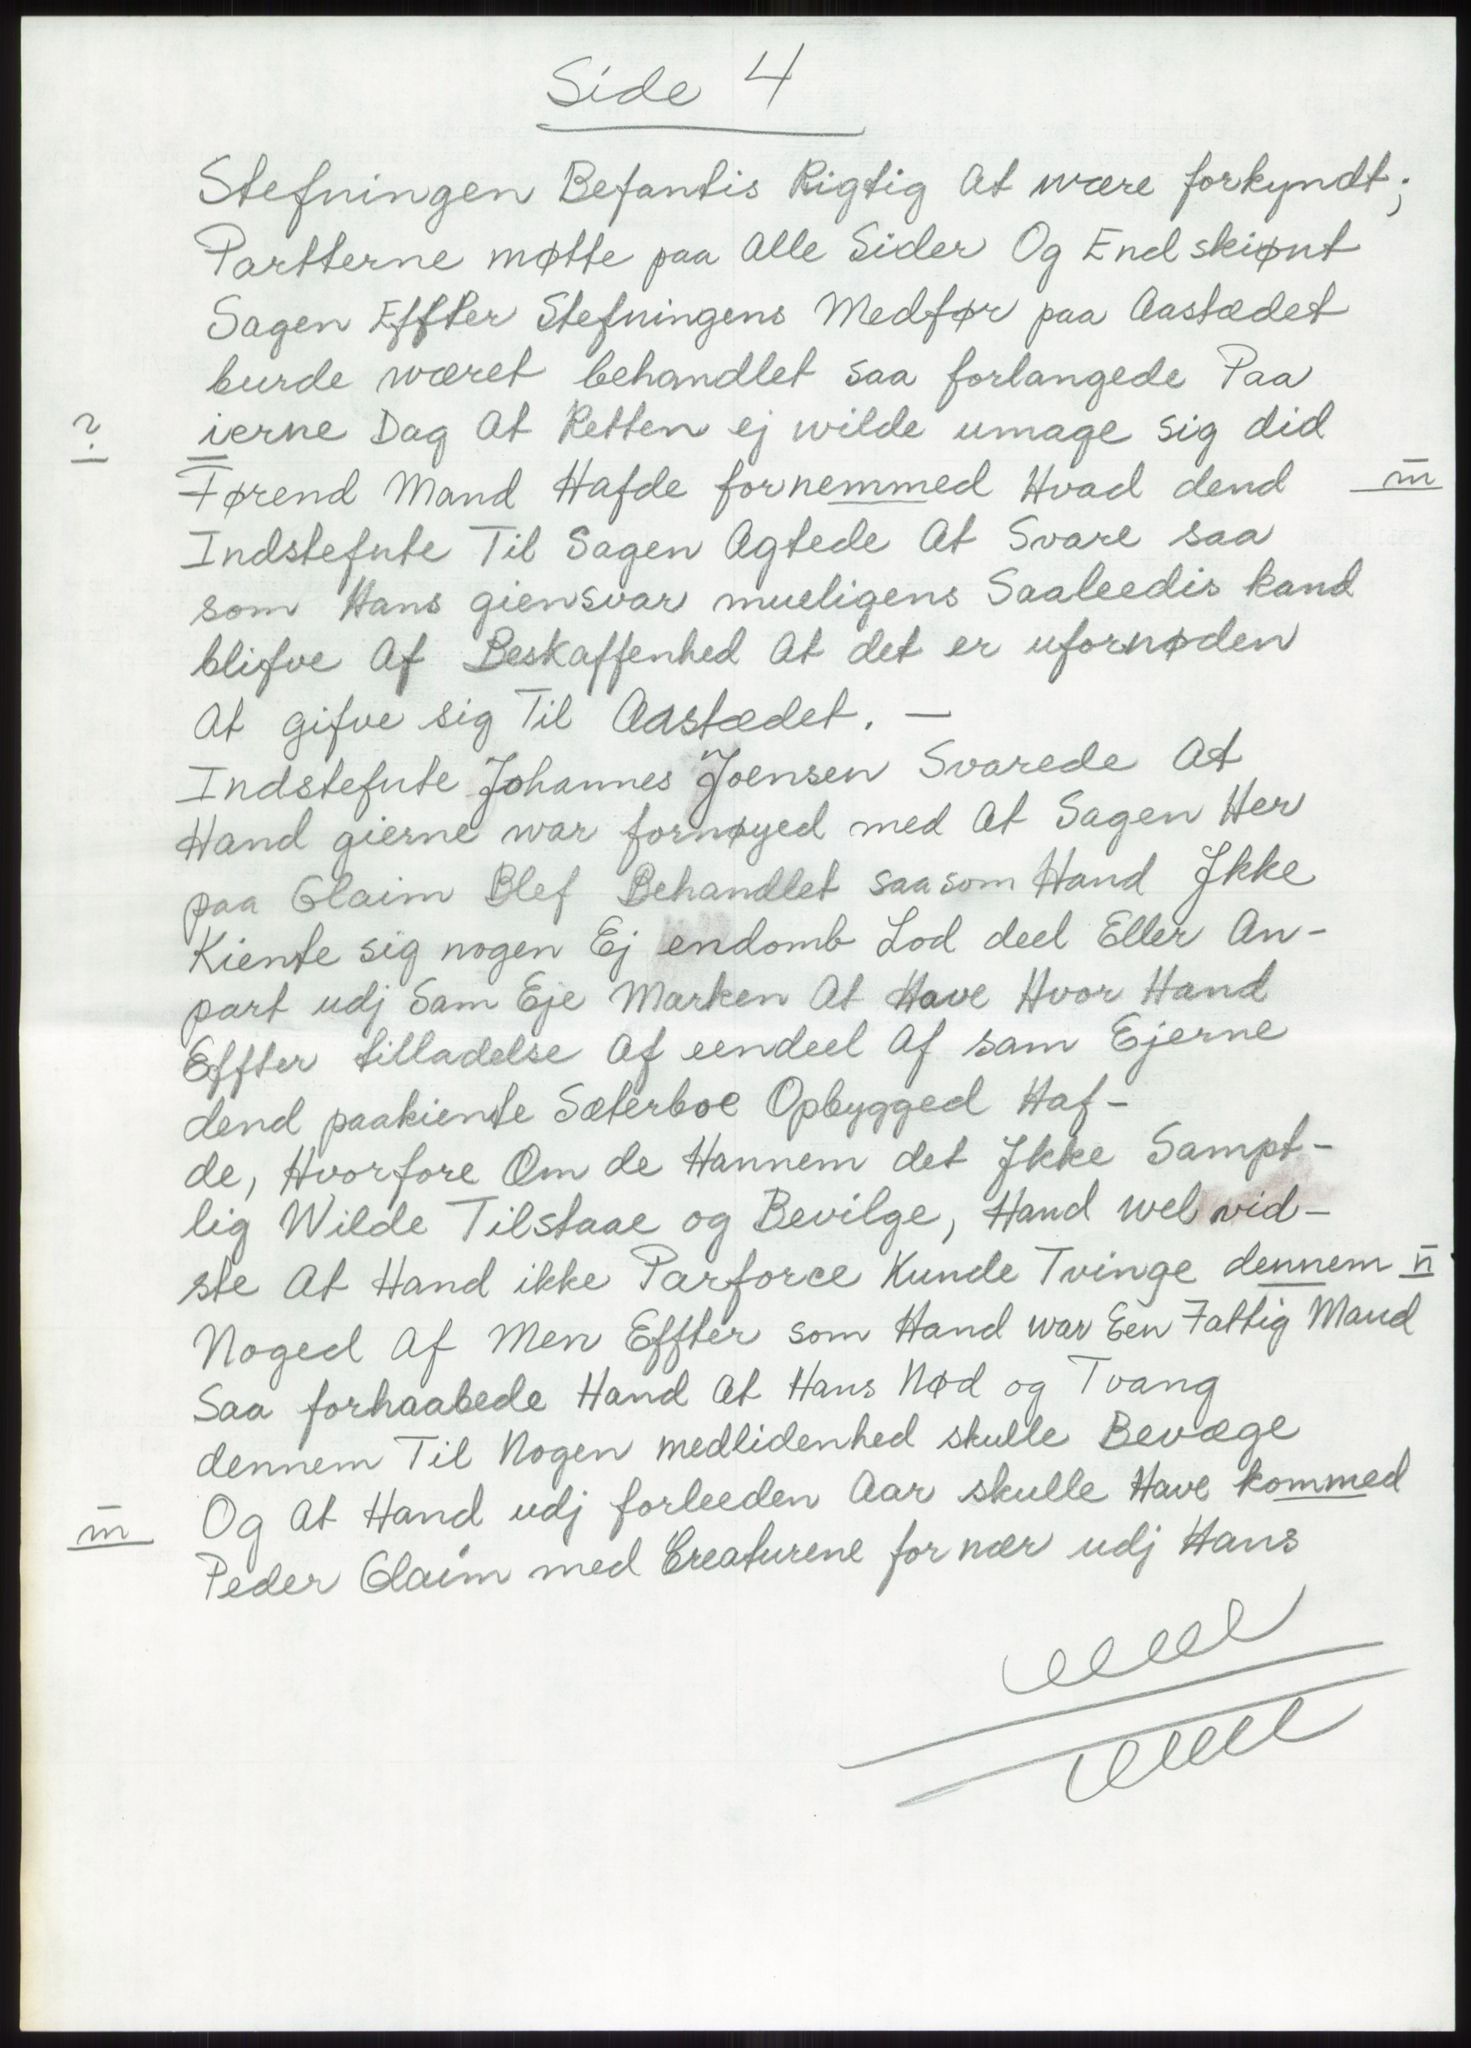 Side 4
Stefningen Befantis Rigtig At være forkyndt;
Partterne møtte paa Alle Sider Og Endskiønt
Sagen Effter Stefningens Medfør paa Aastædet
burde været behandlet saa forlangede Paa
? ierne Dag At Retten ej wilde umage sig did
Førend Mand Hafde fornemmed Hvad dend m̅
Indstefnte Til Sagen Agtede At Svare saa
som Hans giensvar mueligens Saaleedis kand
blifve Af Beskaffenhed At det er ufornøden
At gifve sig Til Aastædet. —
Indstefnte Johannes Joensen Svarede At
Hand gierne war fornøyed med At Sagen Her
paa Glaim Blef Behandlet saasom Hand Ikke
Kiente sig nogen Ej endomb Lod deel Eller An-
part udj Sam Eje Marken At Have Hvor Hand
Effter tilladelse Af eendeel Af sam Ejerne
dend paakiente Sæterboe Opbygged Haf-
de, Hvorfore Om de Hannem det Ikke Sampt-
lig Wilde Tilstaae og Bevilge, Hand wel vid-
ste At Hand ikke Parforce Kunde Tvinge dennem n̅
Noged Af Men Effter som Hand war Een Fattig Mand
Saa forhaabede Hand At Hans Nød og Tvang
dennem Til Nogen medlidenhed skulle Bevæge
m̅ Og At Hand udj forleeden Aar skulle Have kommed
Peder Glaim med Creaturene for nær udj Hans